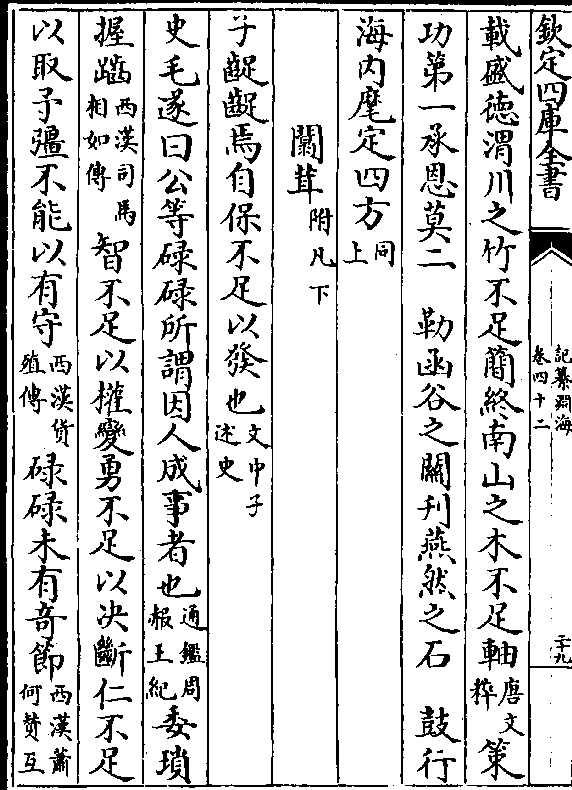 欽定四庫全書
記纂淵海
卷四十二
二十九
載盛徳渭川之竹不足簡終南山之木不足軸唐文粹策
功第一承恩莫二　勒函谷之關刊燕然之石　鼓行
海内麾定四方同上
闒茸附凡下
子齪齪焉自保不足以發也文中子述史
史毛遂曰公等碌碌所謂因人成事者也通鑑周赧王紀委瑣
握齱西漢司馬相如傳智不足以權變勇不足以决斷仁不足
以取予彊不能以有守西漢貨殖傳碌碌未有竒節西漢蕭何贊互